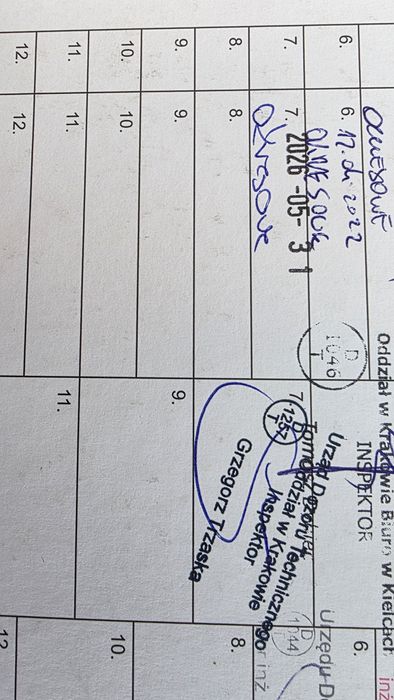 OKRESOWE
Oddział w Krakowie Biuro w Kielcach
INSPEKTOR
inż
6.
6. 12.04.2022
OKRESOWE
D
1046
T
Urzędu D
6.
7.
7. 2026 -05- 3 1
okresowe
7.
1257
T
Urząd Dozoru Technicznego
Oddział w Krakowie
Inspektor
Grzegorz Trzaska
D
1044
inż
8.
8.
8.
9.
9.
9.
10.
10.
10.
11.
11.
11.
12.
12.
12